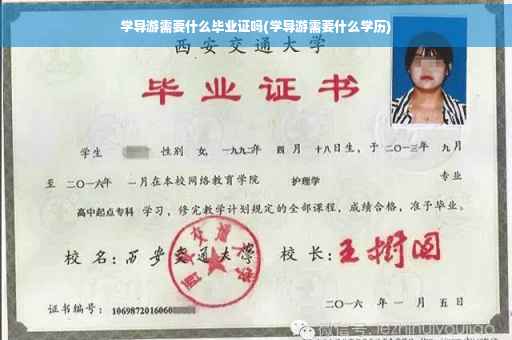 学导游需要什么毕业证吗(学导游需要什么学历)
西安交通大学
毕业证书
学生 性别 女, 一九九二年 四月 十八日生, 于 二〇一三年 九月
至 二〇一六年 一月在本校网络教育学院 护理学 专业
高中起点专科 学习, 修完教学计划规定的全部课程, 成绩合格, 准予毕业。
校名: 西安交通大学 校长: 王树国
西安交通大学
证书编号: 1069872016060
二〇一六年 一月 五日
微信号: jezhihuiyoujiao